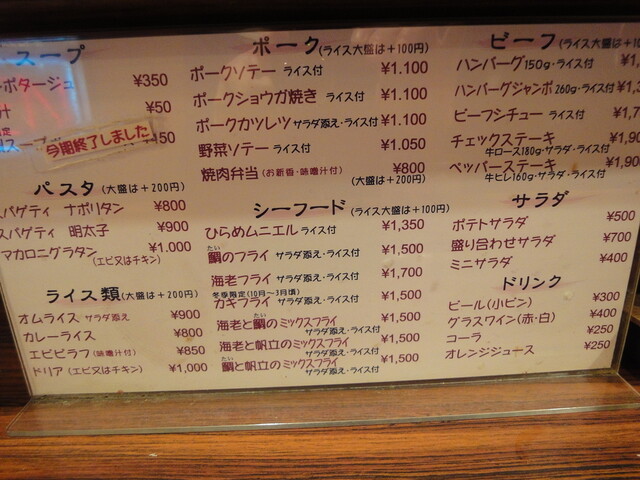 スープ
ポタージュ ¥350
汁 ¥50
スープ ¥450
今期終了しました
パスタ(大盛は＋200円)
スパゲティ ナポリタン ¥800
スパゲティ 明太子 ¥900
マカロニグラタン ¥1.000
(エビ又はチキン)
ライス類(大盛は＋200円)
オムライス サラダ添え ¥900
カレーライス ¥800
エビピラフ(味噌汁付) ¥850
ドリア(エビ又はチキン) ¥1,000
ポーク(ライス大盛は＋100円)
ポークソテー ライス付 ¥1.100
ポークショウガ焼き ライス付 ¥1.100
ポークカツレツ サラダ添え・ライス付 ¥1.100
野菜ソテー ライス付 ¥1.050
焼肉弁当(お新香・味噌汁付) ¥800
(大盛は＋200円)
シーフード(ライス大盛は＋100円)
ひらめムニエル ライス付 ¥1,350
たい
鯛のフライ サラダ添え・ライス付 ¥1,500
海老フライ サラダ添え・ライス付 ¥1,700
冬季限定(10月～3月頃)
カキフライ サラダ添え・ライス付 ¥1,500
たい
海老と鯛のミックスフライ ¥1,500
サラダ添え・ライス付
海老と帆立のミックスフライ ¥1,500
サラダ添え・ライス付
たい
鯛と帆立のミックスフライ ¥1,500
サラダ添え・ライス付
ビーフ(ライス大盛は＋10
ハンバーグ150g・ライス付 ¥1,
ハンバーグジャンボ 260g・ライス付 ¥1,
ビーフシチュー ライス付 ¥1,7
チェックステーキ ¥1,90
牛ロース180g・サラダ・ライス付
ペッパーステーキ ¥1,90
牛ヒレ160g・サラダ・ライス付
サラダ
ポテトサラダ ¥500
盛り合わせサラダ ¥700
ミニサラダ ¥400
ドリンク
ビール(小ビン) ¥300
グラスワイン(赤・白) ¥400
コーラ ¥250
オレンジジュース ¥250